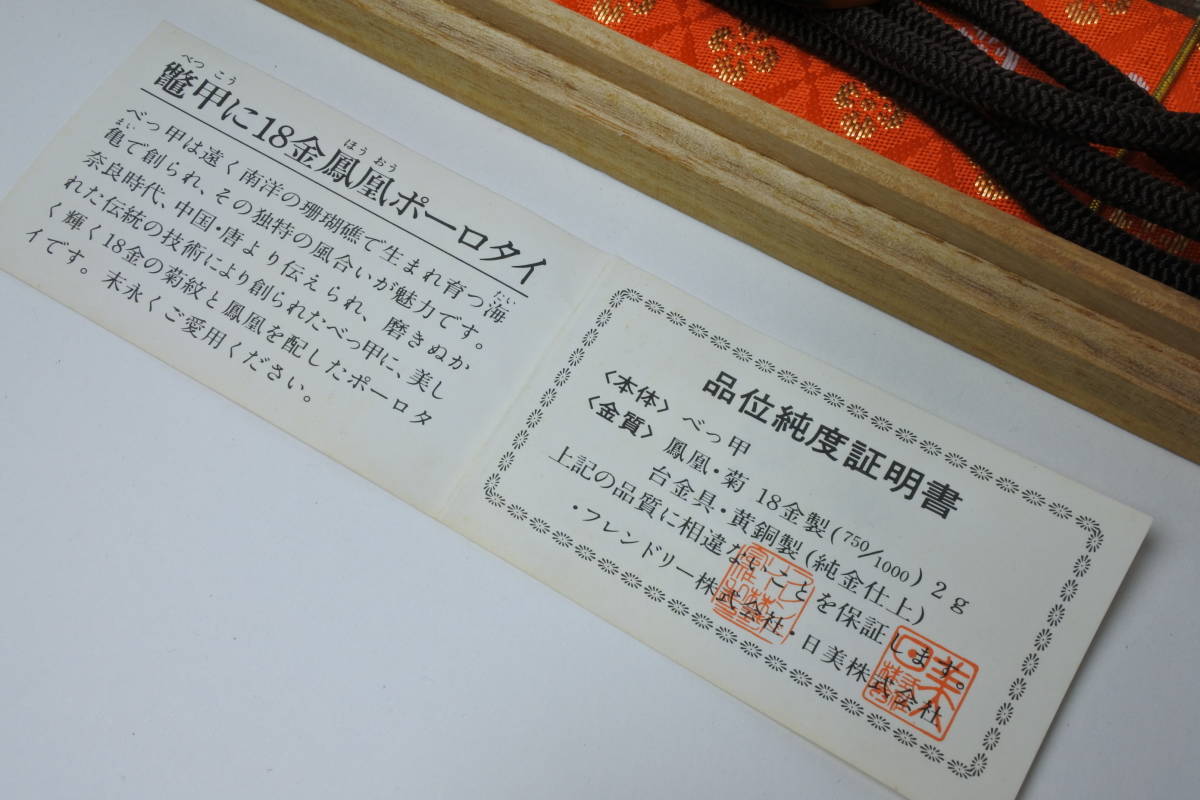 鼈甲に18金鳳凰ポーロタイ
べつ こう
ほう おう
べっ甲は遠く南洋の珊瑚礁で生まれ育つ海
亀で創られ、その独特の風合いが魅力です。
たい
まい
奈良時代、中国・唐より伝えられ、磨きぬか
れた伝統の技術により創られたべっ甲に、美し
く輝く18金の菊紋と鳳凰を配したポーロタ
イです。末永くご愛用ください。
品位純度証明書
〈本体〉べっ甲
〈金質〉鳳凰・菊 18金製(750/1000) 2g
台金具・黄銅製(純金仕上)
上記の品質に相違ないことを保証します。
・フレンドリー株式会社・日美株式会社